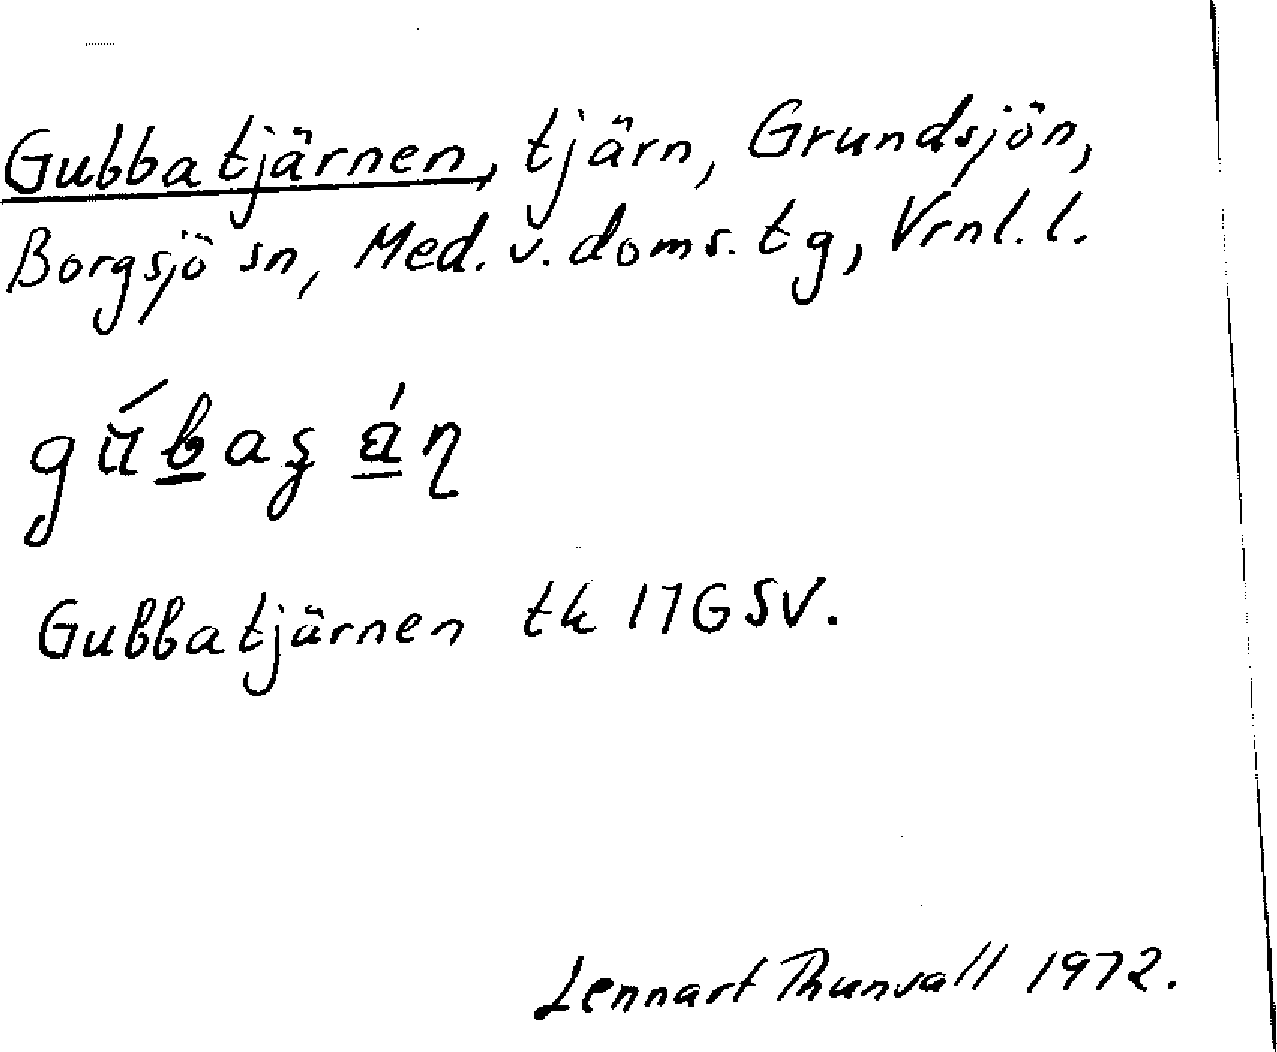 Gubbatjärnen, tjärn, Grundsjön,
Borgsjö sn, Med. v. doms. tg, Vrnl. l.
Gubbatjärnen tk 17G SV.
Lennart Thunvall 1972.